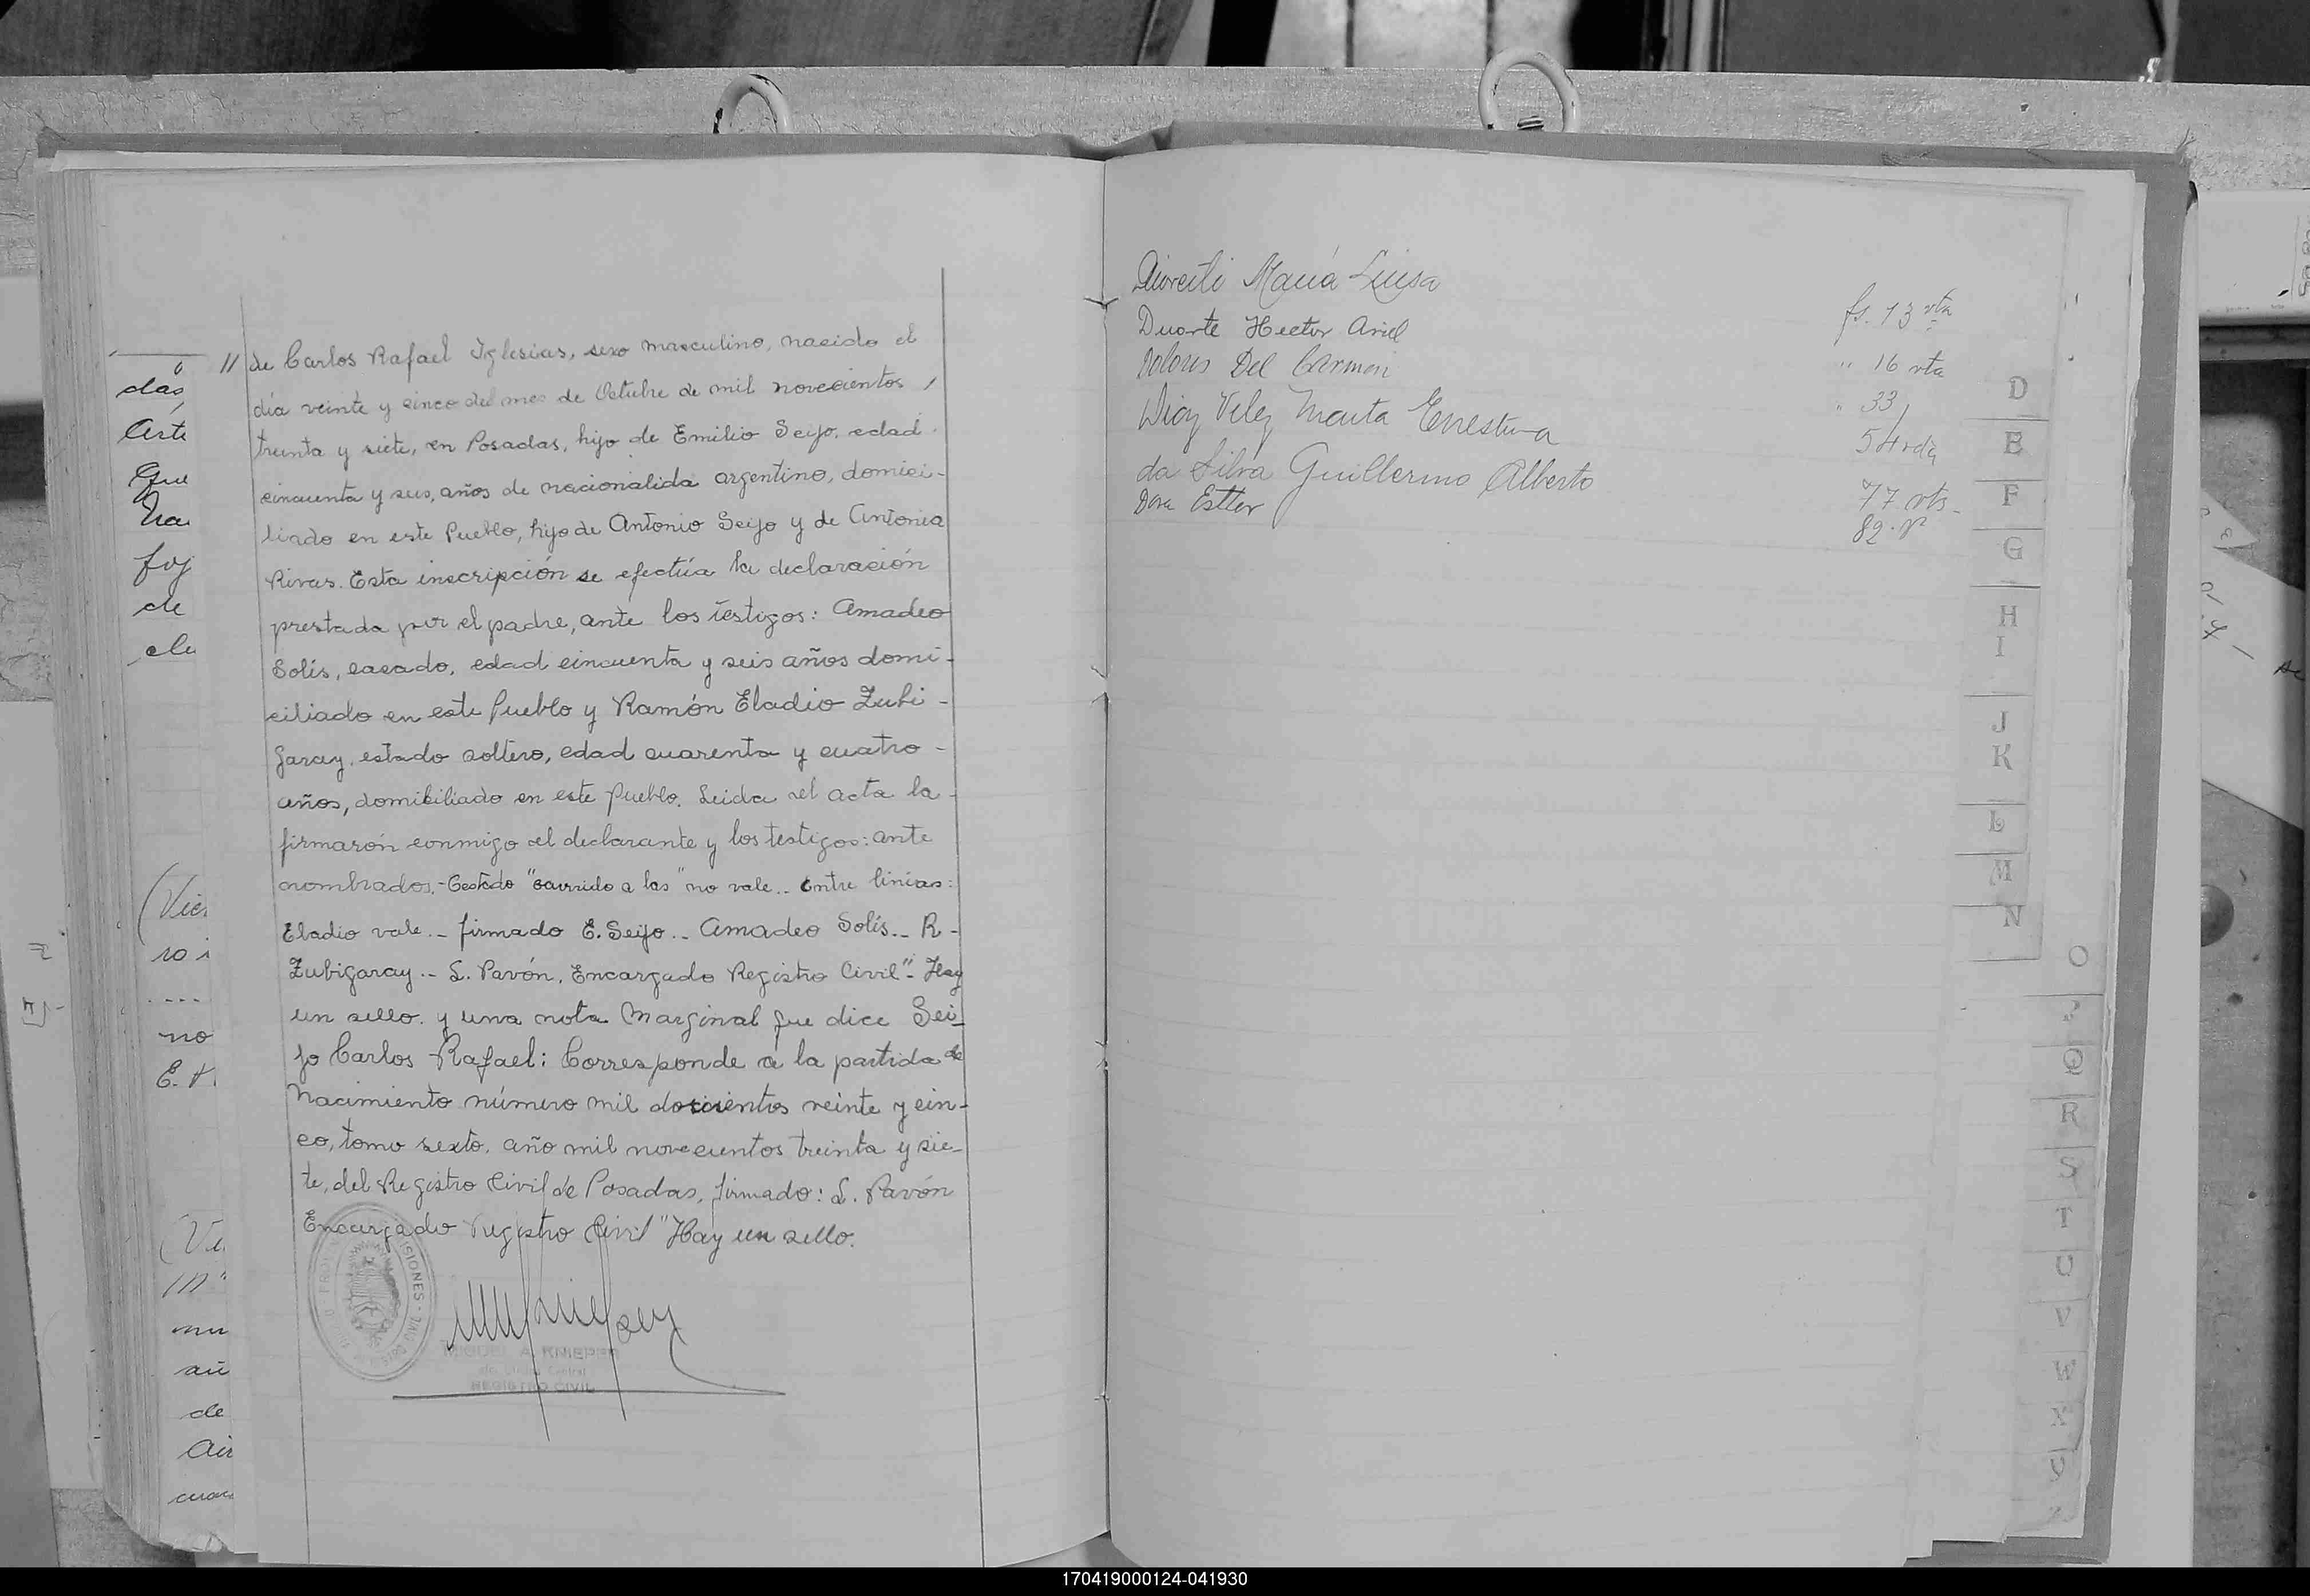 // de Carlos Rafael Iglesias, sexo masculino, nacido el
día veinte y cinco del mes de Octubre de mil novecientos
treinta y siete, en Posadas, hijo de Emilio Seijo, edad
cincuenta y seis, años de nacionalida argentino, domici-
liado en este Pueblo, hijo de Antonio Seijo y de Antonia
Rivas. Esta inscripción se efectúa la declaración
prestada por el padre, ante los testigos: Amadeo
Solís, casado, edad cincuenta y seis años domi-
ciliado en este Pueblo y Ramón Eladio Zubi-
garay, estado soltero, edad cuarenta y cuatro -
años, domiciliado en este Pueblo. Leida el acta la -
firmarón conmigo el declarante y los testigos: ante
nombrados.- "ocurrido a las" no vale.- Entre linias:
Eladio vale.- firmado E. Seijo.- Amadeo Solís.- R -
Zubigaray.- L. Pavón, Encargado Registro Civil".- Hay
un sello. y una nota Marginal que dice Sei-
jo Carlos Rafael: Corresponde a la partida de
Nacimiento número mil doscientos veinte y cin-
co, tomo sexto, año mil novecientos treinta y sie-
te, del Registro Civil de Posadas, firmado: L. Pavón
Encargado Registro Civil" Hay un sello.
MISIONES
REGISTRO CIVIL
das,
de
no
de
María Luisa fs. 13 vta
Duarte Hector Ariel " 16 vta
Dolores Del Carmen " 33
Diaz Velez Marta Ernestina 54 vta
da Silva Guillermo Alberto 77 vta
Dora Ester 82
D
E
F
G
H
I
J
K
L
M
N
O
P
Q
R
S
T
U
V
W
X
Y
170419000124-041930